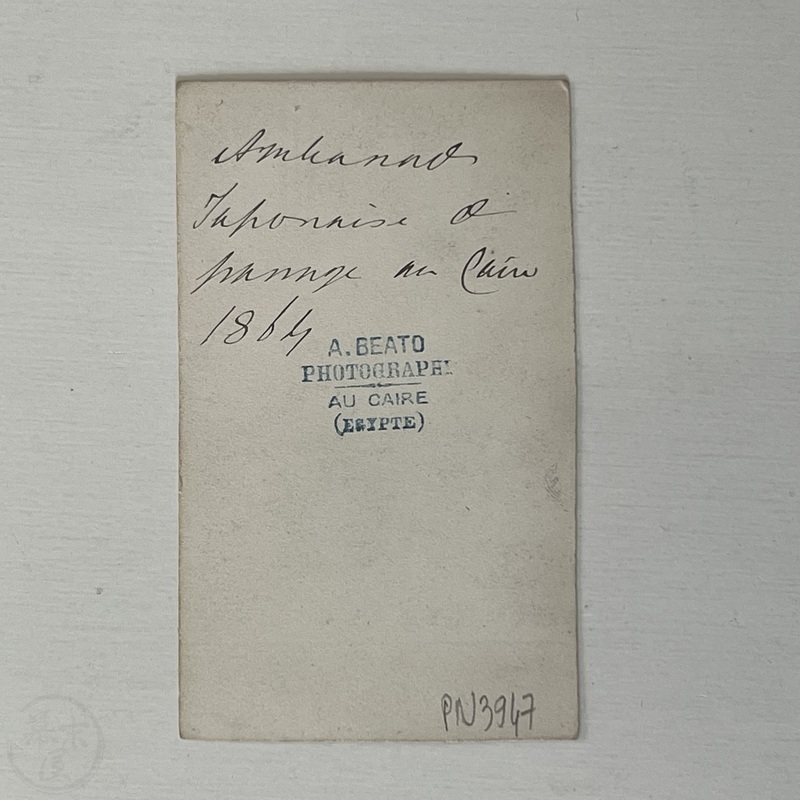 Ambassade
Japonaise de
passage au Caire
1864
A. BEATO
PHOTOGRAPHE
AU CAIRE
(EGYPTE)
PN3947